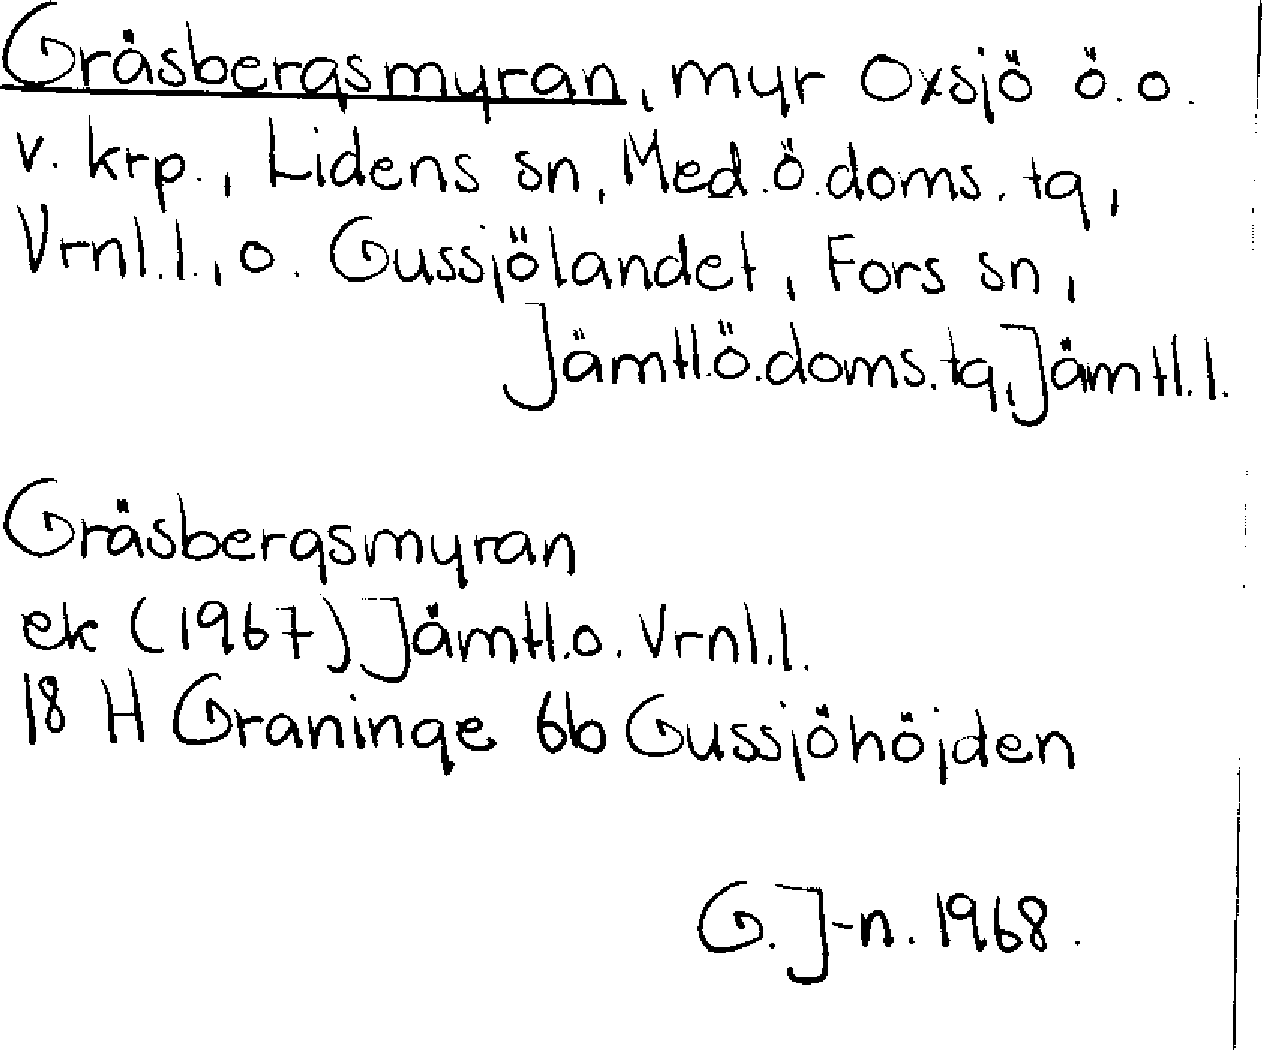 Gräsbergsmyran, myr Oxsjö ö.o.
v. krp., Lidens sn, Med.ö.doms.tg,
Vrnl.l., o. Gussjölandet, Fors sn,
Jämtl.ö.doms.tg, Jämtl.l.
Gräsbergsmyran
ek (1967) Jämtl.o. Vrnl.l.
18 H Graninge 6b Gussjöhöjden
G. J-n. 1968.